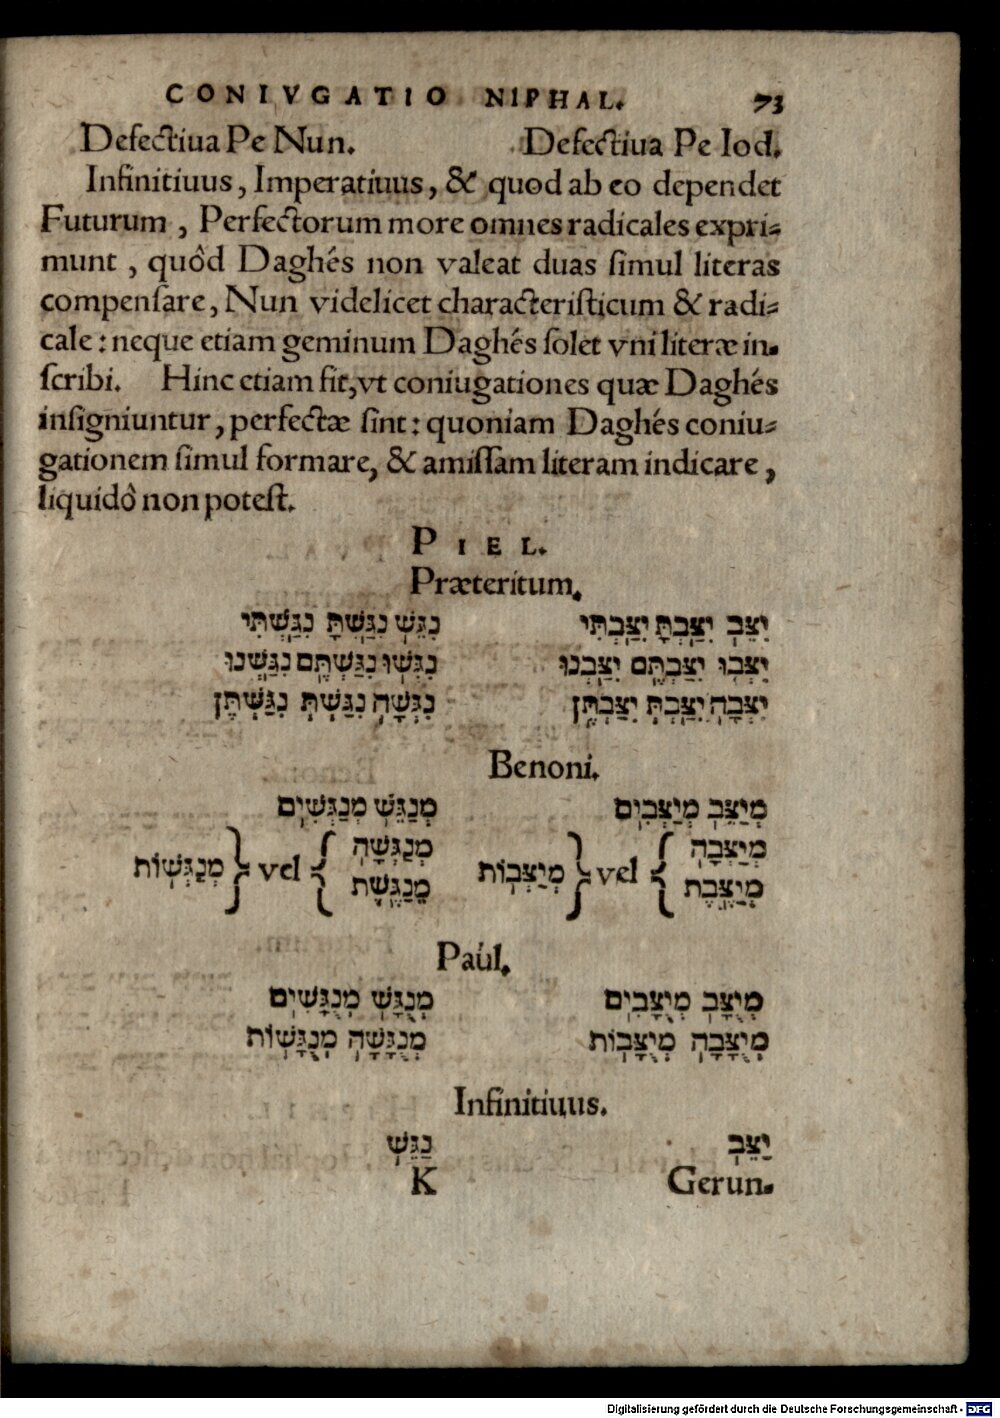 CONIVGATIO NIPHAL. 73
Defectiua Pe Nun. Defectiua Pe Iod.
Infinitiuus, Imperatiuus, & quod ab eo dependet
Futurum, Perfectorum more omnes radicales expri-
munt, quòd Daghés non valeat duas simul literas
compensare, Nun videlicet characteristicum & radi-
cale: neque etiam geminum Daghés solet vni literæ in-
scribi. Hinc etiam fit, vt coniugationes quæ Daghés
insigniuntur, perfectæ sint: quoniam Daghés coniu-
gationem simul formare, & amissam literam indicare,
liquidò non potest.
PIEL.
Præteritum.
יִצֵּב יִצַּבְתָּ יִצַּבְתִּי נִגֵּשׁ נִגַּשְׁתָּ נִגַּשְׁתִּי
יִצְּבוּ יִצַּבְתֶּם יִצַּבְנוּ נִגְּשׁוּ נִגַּשְׁתֶּם נִגַּשְׁנוּ
יִצְּבָה יִצַּבְתְּ יִצַּבְתֶּן נִגְּשָׁה נִגַּשְׁתְּ נִגַּשְׁתֶּן
Benoni.
מְיַצֵּב מְיַצְּבִים מְנַגֵּשׁ מְנַגְּשִׁים
מְיַצְּבָה מְנַגְּשָׁה
vel מְיַצְּבוֹת vel מְנַגְּשׁוֹת
מְיַצֶּבֶת מְנַגֶּשֶׁת
Paúl.
מְיֻצָּב מְיֻצָּבִים מְנֻגָּשׁ מְנֻגָּשִׁים
מְיֻצָּבָה מְיֻצָּבוֹת מְנֻגָּשָׁה מְנֻגָּשׁוֹת
Infinitiuus.
יַצֵּב נַגֵּשׁ
K Gerun-
Digitalisierung gefördert durch die Deutsche Forschungsgemeinschaft - DFG